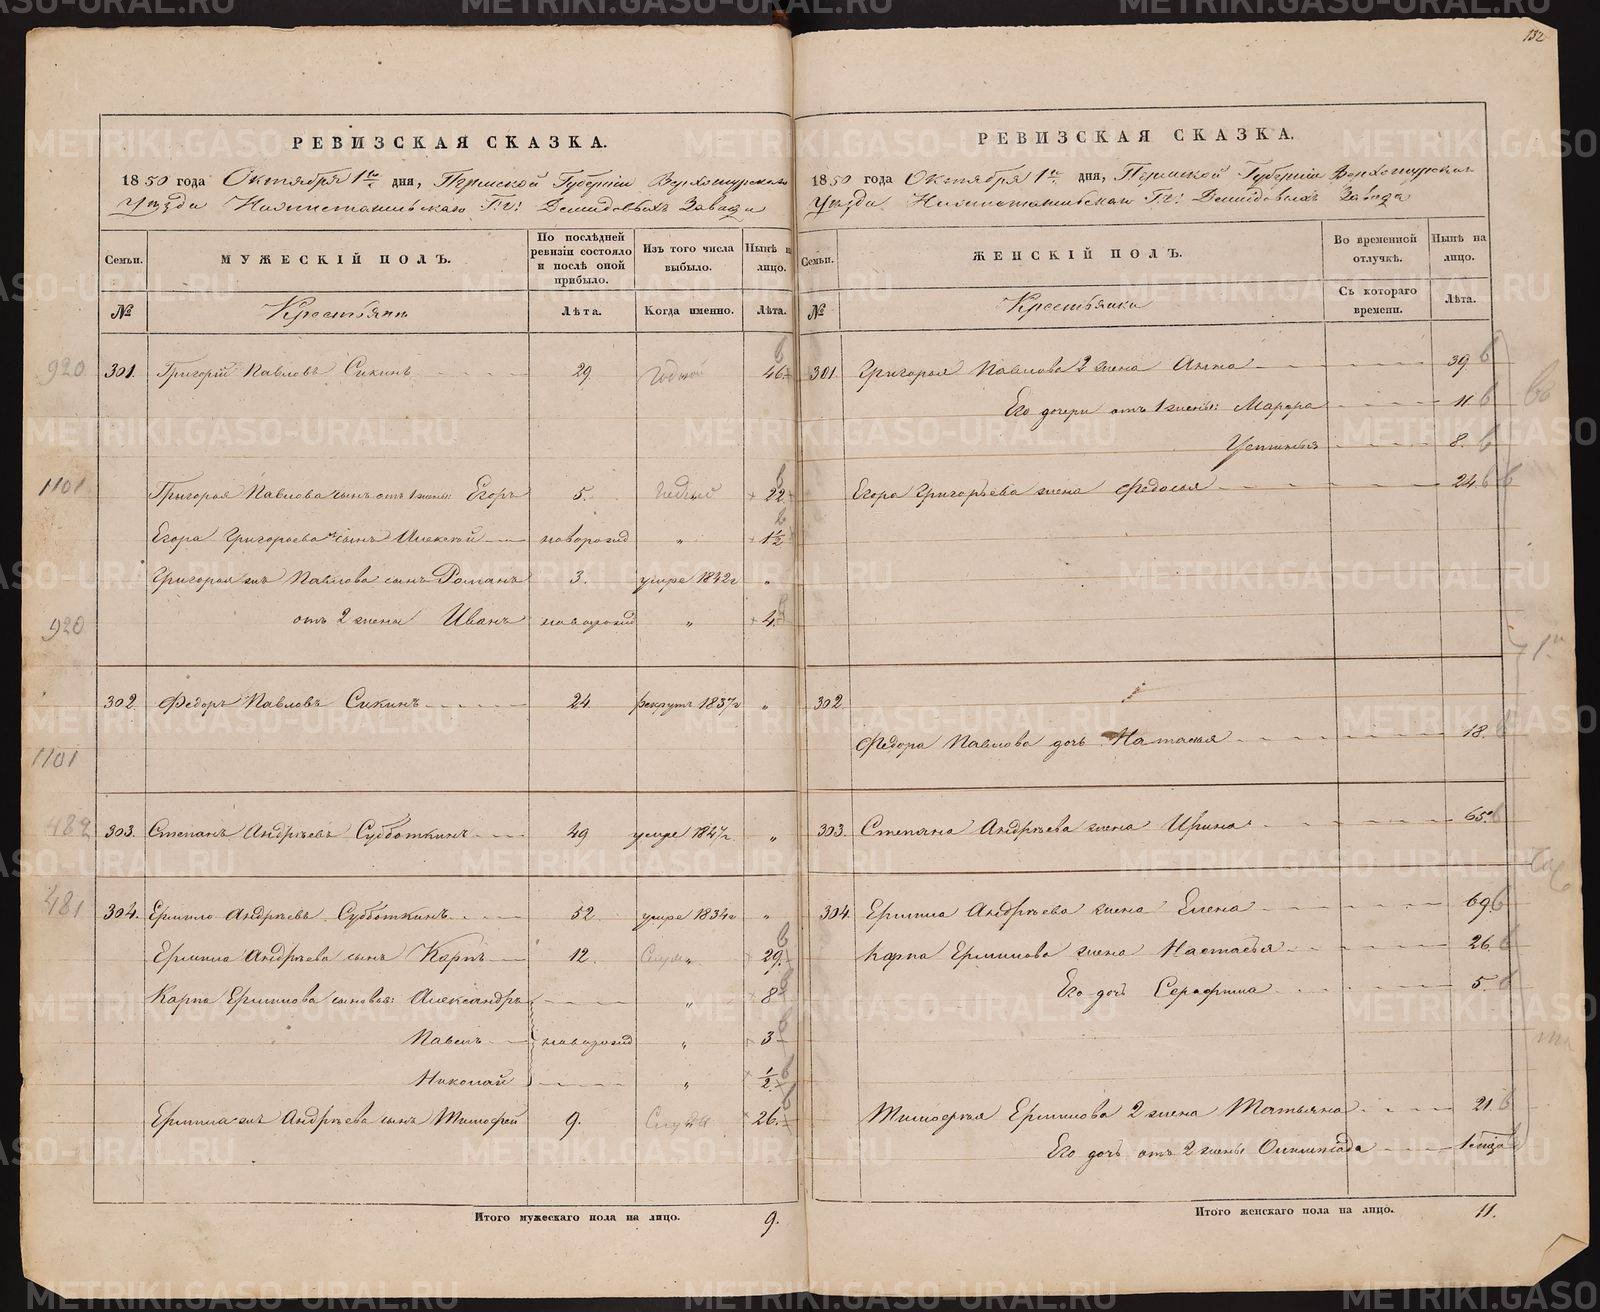 132
РЕВИЗСКАЯ СКАЗКА.
1850 года Октября 1го дня, Пермской Губерніи Верхотурскаго
Уѣзда Нижнетагильскаго Г.г: Демидовыхъ Завода
Семьи.
МУЖЕСКІЙ ПОЛЪ.
По послѣдней ревизіи состояло и послѣ оной прибыло.
Изъ того числа выбыло.
Нынѣ на лицо.
№
Крестьянъ
Лѣта.
Когда именно.
Лѣта.
920 301. Григорій Павловъ Сикинъ 29 Годной 46
1101 Григорья Павлова сынъ отъ 1 жены: Егоръ 5. Годный 22
Егора Григорьева сынъ Алексѣй новорожд " 1½
Григорья жъ Павлова сынъ Романъ 3. умре 1842г "
920 отъ 2 жены Иванъ новорожд " 4
302. Федоръ Павловъ Сикинъ 24 рекрутъ 1837г "
1101
482 303. Степанъ Андрѣевъ Субботкинъ 49 умре 1847г. "
481 304. Ермило Андрѣевъ Субботкинъ 52 умре 1834г "
Ермила Андрѣева сынъ Карпъ 12. " 29.
Карпа Ермилова сыновья: Александръ " 8
Павелъ новорожд " 3
Николай " ½
Ермила жъ Андрѣева сынъ Тимофей 9. 26.
Итого мужескаго пола на лицо. 9.
РЕВИЗСКАЯ СКАЗКА.
1850 года Октября 1го дня, Пермской Губерніи Верхотурскаго
Уѣзда Нижнетагильскаго Г.г: Демидовыхъ Завода
Семьи.
ЖЕНСКІЙ ПОЛЪ.
Во временной отлучкѣ.
Нынѣ на лицо.
№
Крестьянки
Съ котораго времени.
Лѣта.
301. Григорья Павлова 2 жена Анна 39
Его дочери отъ 1 жены: Марфа 11
Устинья 8.
Егора Григорьева жена Федосья 24
302.
Федора Павлова дочь Наталья 18
303. Степана Андрѣева жена Ирина 65
304. Ермила Андрѣева жена Елена 69
Карпа Ермилова жена Настасья 26
Его дочь Серафима 5.
Тимофея Ермилова 2 жена Татьяна 21
Его дочь отъ 2 жены Олимпіада
Итого женскаго пола на лицо. 11.
METRIKI.GASO-URAL.RU